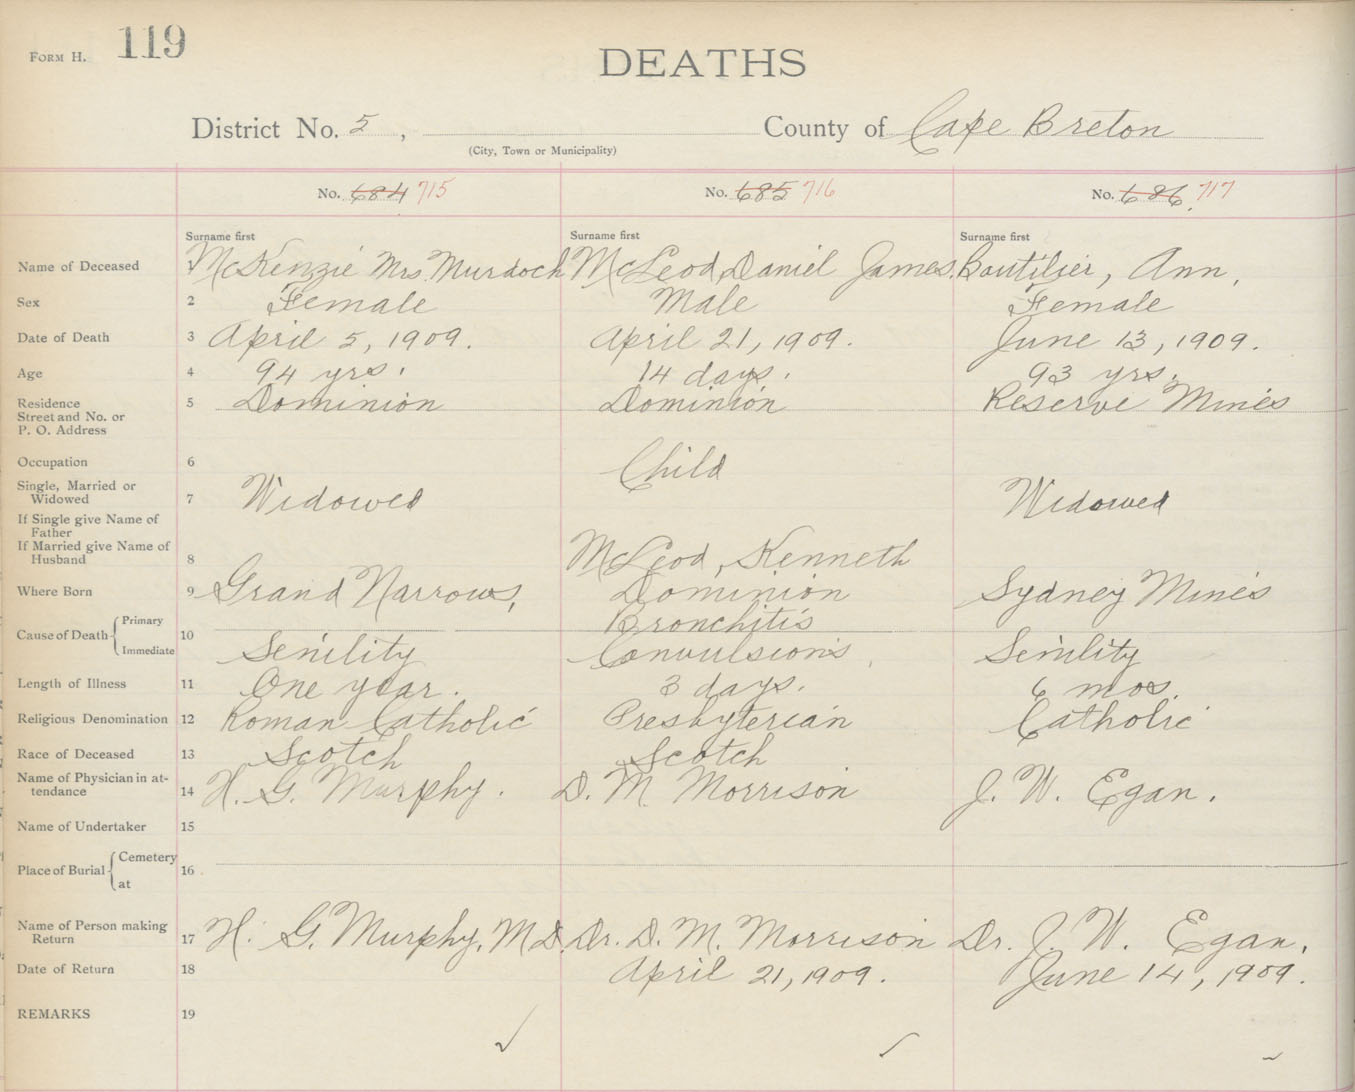 FORM H. 119
DEATHS
District No. 5, County of Cape Breton
(City, Town or Municipality)
No. 684 715 No. 685 716 No. 686 717
Surname first Surname first Surname first
Name of Deceased 1 McKenzie Mrs. Murdoch McLeod, Daniel James. Boutilier, Ann,
Sex 2 Female Male Female
Date of Death 3 April 5, 1909. April 21, 1909. June 13, 1909.
Age 4 94 yrs. 14 days. 93 yrs.
Residence 5 Dominion Dominion Reserve Mines
Street and No. or
P. O. Address
Occupation 6 Child
Single, Married or
Widowed 7 Widowed Widowed
If Single give Name of
Father
If Married give Name of
Husband 8 McLeod, Kenneth
Where Born 9 Grand Narrows, Dominion Sydney Mines
Cause of Death Primary 10 Bronchitis
Immediate Senility Convulsions, Senility
Length of Illness 11 One year. 3 days. 6 mos.
Religious Denomination 12 Roman Catholic Presbyterian Catholic
Race of Deceased 13 Scotch Scotch
Name of Physician in at-
tendance 14 H. G. Murphy. D. M. Morrison J. W. Egan.
Name of Undertaker 15
Place of Burial Cemetery 16
at
Name of Person making
Return 17 H. G. Murphy, M.D. Dr. D. M. Morrison Dr. J. W. Egan,
Date of Return 18 April 21, 1909. June 14, 1909.
REMARKS 19